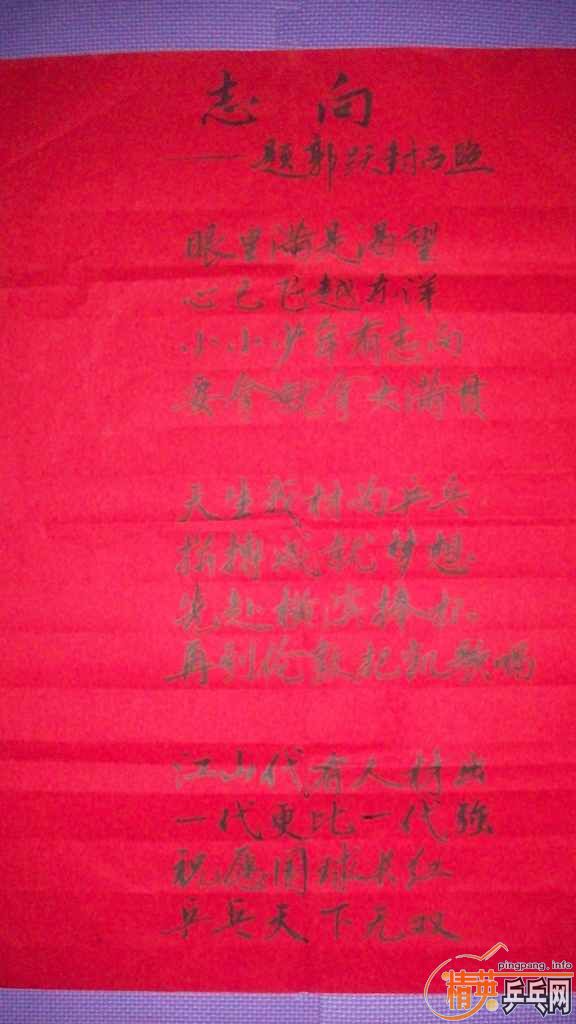 志向
——题郭跃封马照
眼里满是渴望
心已飞越东洋
小小少年有志向
要拿就拿大满贯
天生我材为乒乓
拼搏成就梦想
先赴横滨捧杯
再到伦敦把凯歌唱
江山代有人材出
一代更比一代强
祝愿国球长红
乒乓天下无双
pingpang.info
精英乒乓网